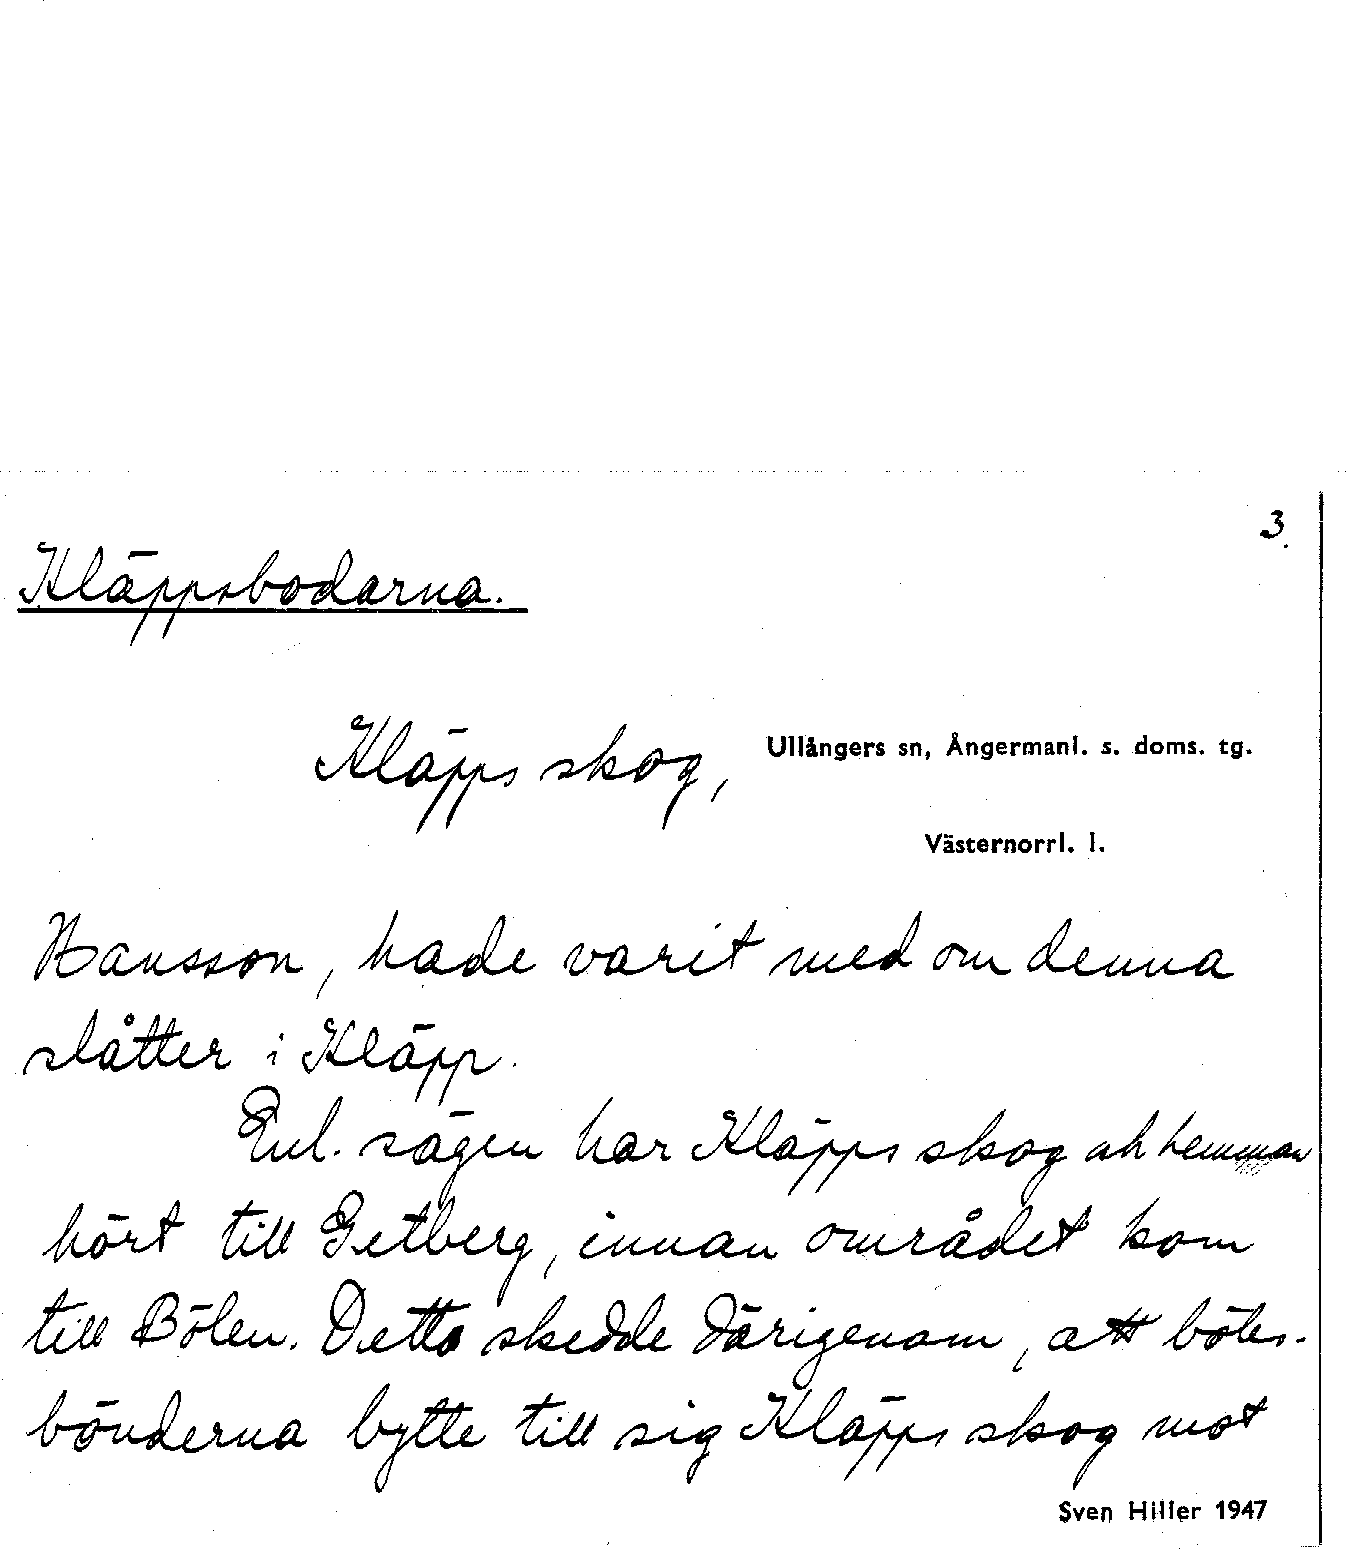 3.
Kläppsbodarna.
Kläpps skog, Ullångers sn, Ångermanl. s. doms. tg.
Västernorrl. l.
Hansson, hade varit med om denna
slåtter i Kläpp.
Enl. sägen har Kläpps skog hemman
hört till Getberg, innan området kom
till Bölen. Detta skedde därigenom, att böles-
bönderna bytte till sig Kläpps skog mot
Sven Hiller 1947